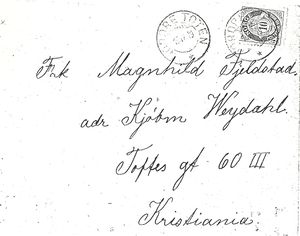 TOTEN
10
Frk Magnhild Fjeldstad.
adr Kjøbm Weydahl.
Toftes gt 60 III
Kristiania.